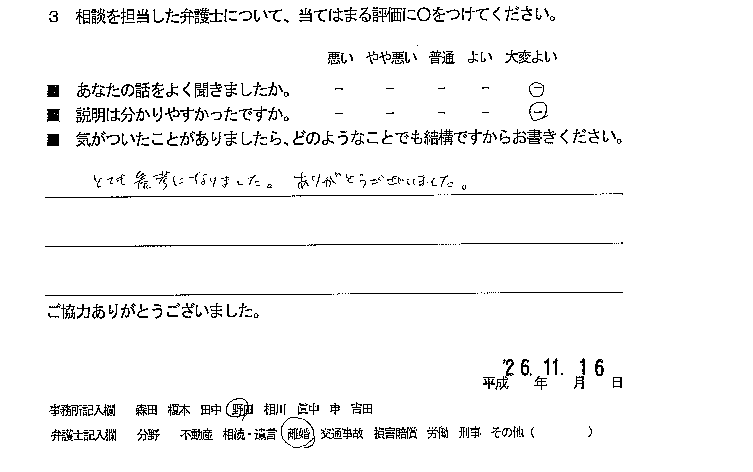 3 相談を担当した弁護士について、当てはまる評価に○をつけてください。
悪い やや悪い 普通 よい 大変よい
■ あなたの話をよく聞きましたか。 − − − − −
■ 説明は分かりやすかったですか。 − − − − −
■ 気がついたことがありましたら、どのようなことでも結構ですからお書きください。
とても参考になりました。ありがとうございました。
ご協力ありがとうございました。
平成 '26. 年 11. 月 16 日
事務所記入欄 森田 榎本 田中 野田 相川 眞中 申 吉田
弁護士記入欄 分野 不動産 相続・遺言 離婚 交通事故 損害賠償 労働 刑事 その他 ( )